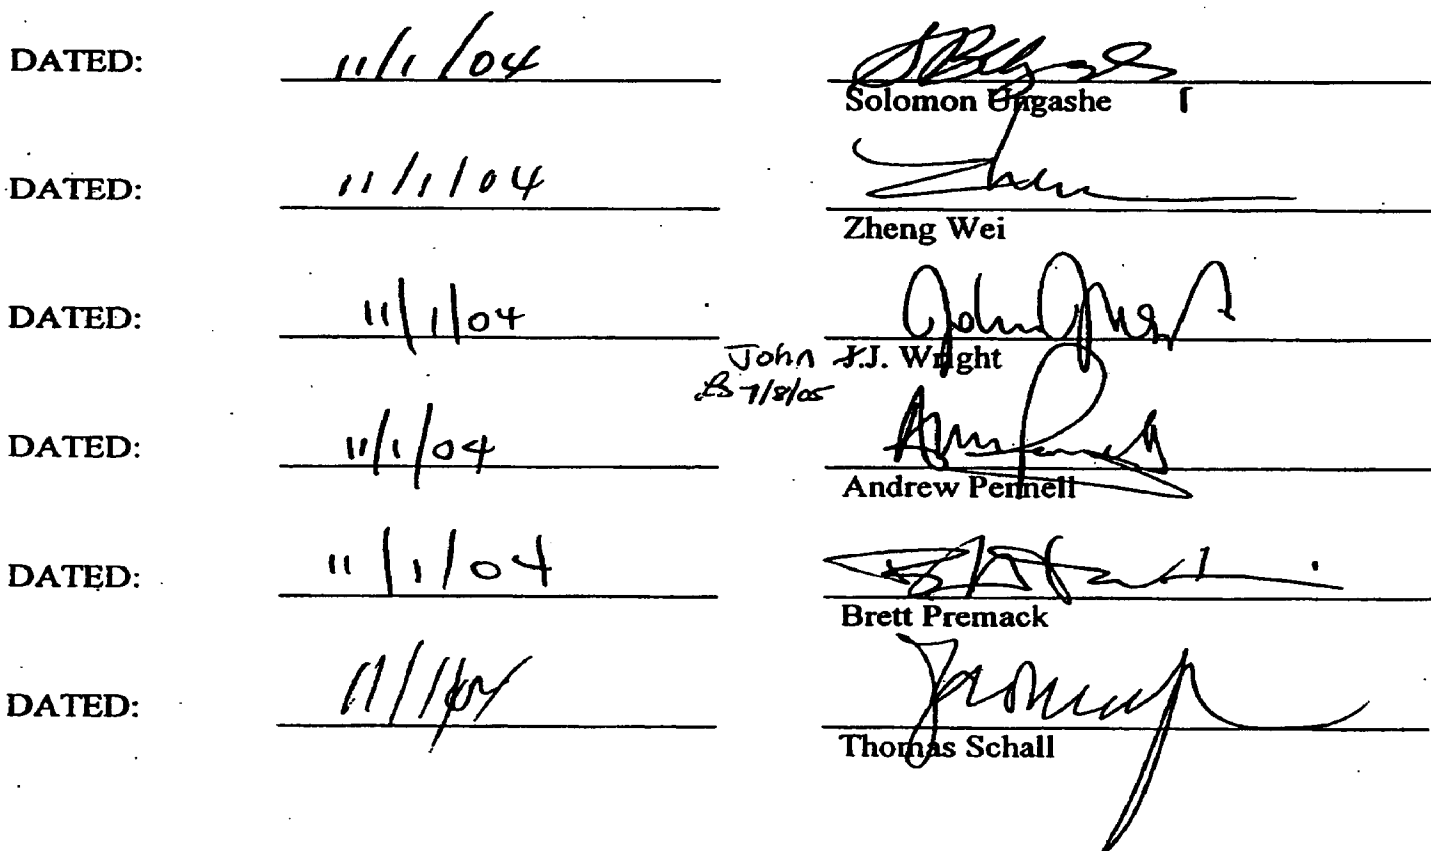 DATED: 11/1/04
Solomon Ungashe
DATED: 11/1/04
Zheng Wei
DATED: 11/1/04
John J.J. Wright
7/8/05
DATED: 11/1/04
Andrew Pennell
DATED: 11/1/04
Brett Premack
DATED: 11/1/04
Thomas Schall